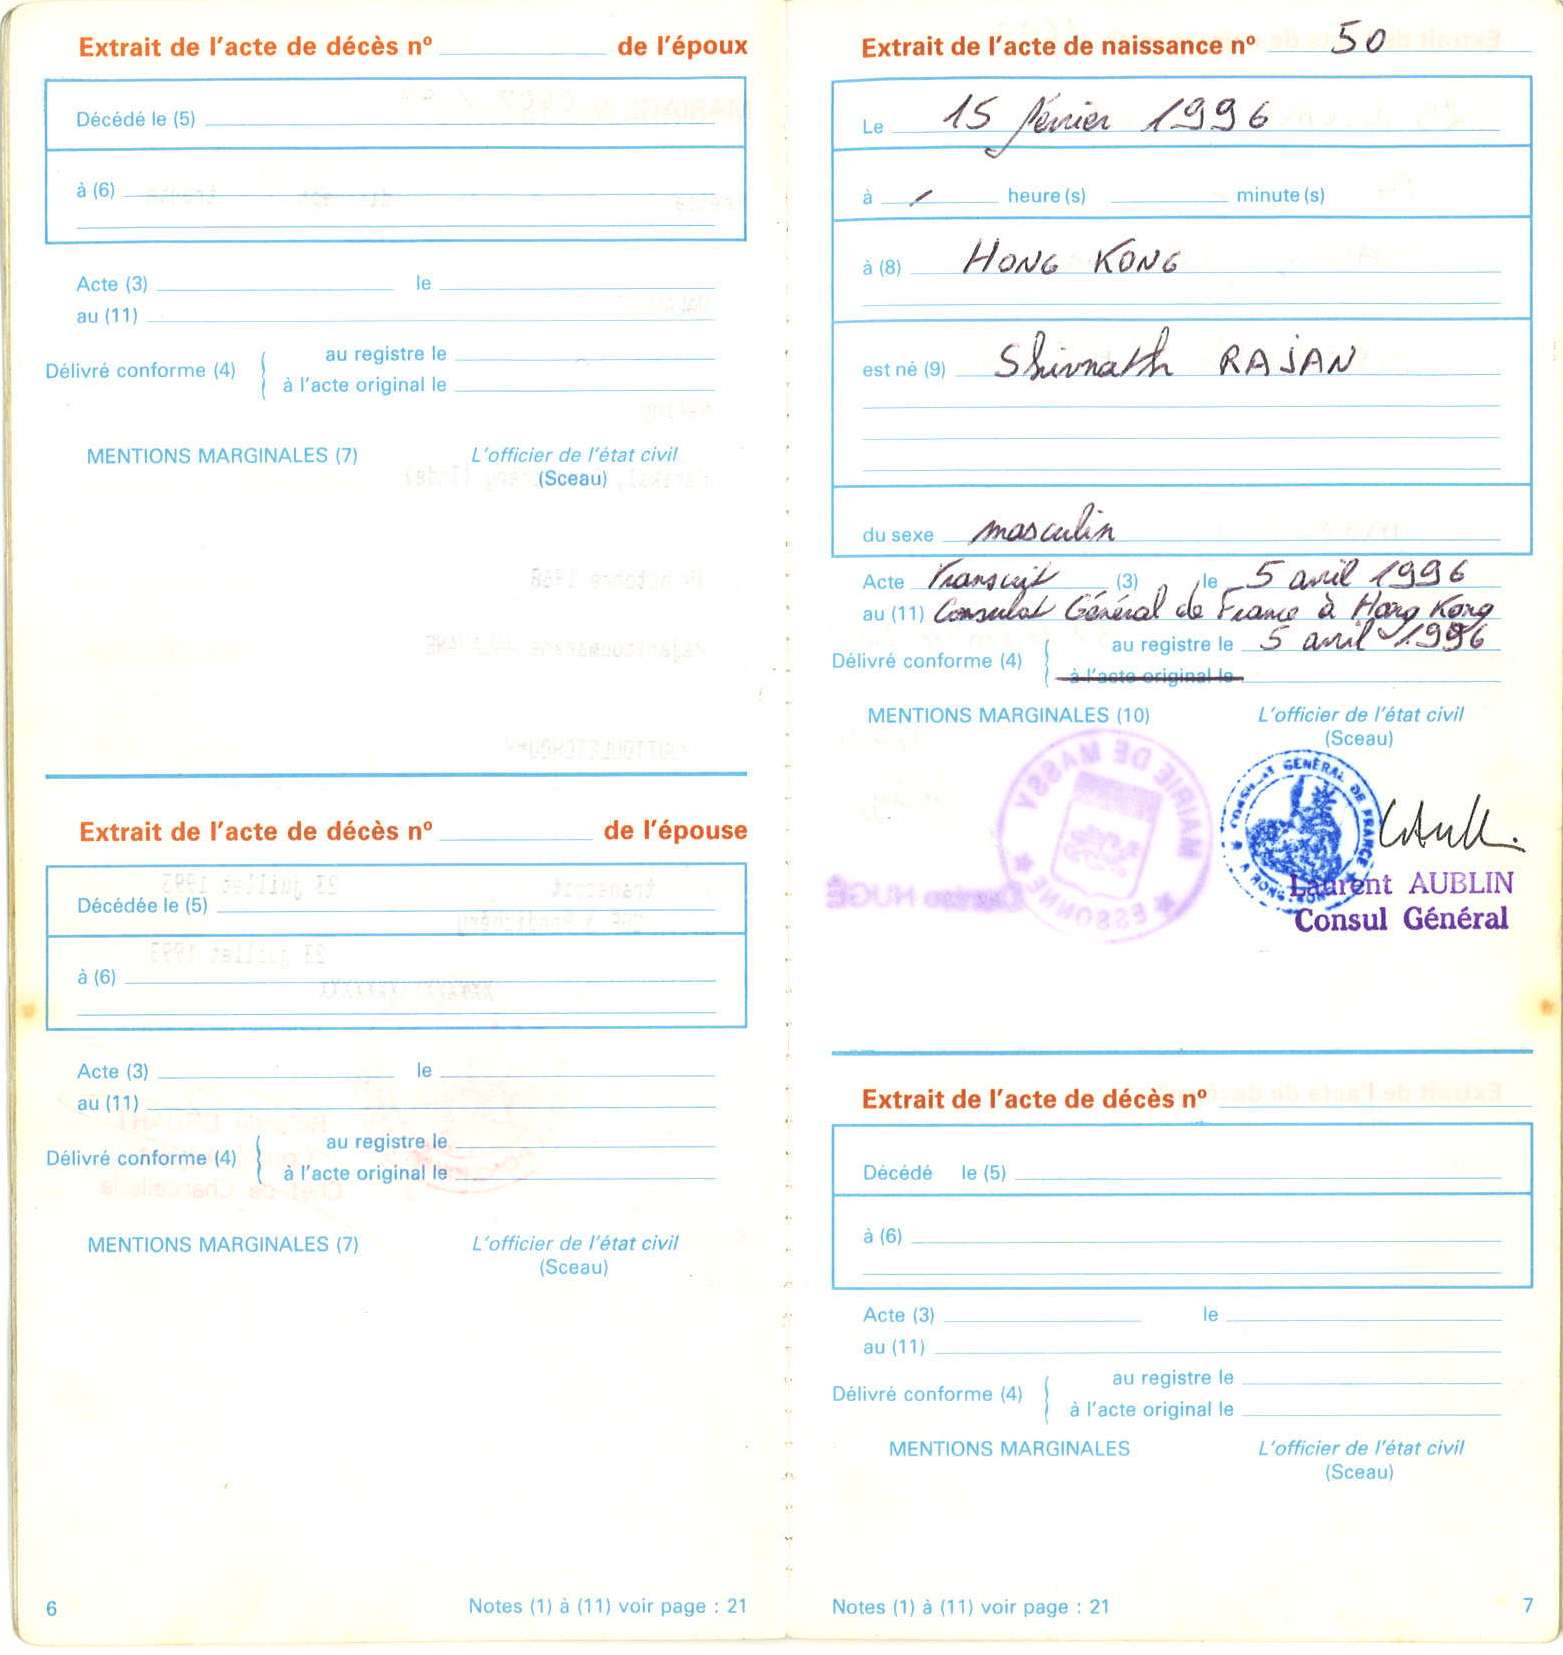 Extrait de l'acte de décès nº de l'époux
Décédé le (5)
à (6)
Acte (3) le
au (11)
Délivré conforme (4)
au registre le
à l'acte original le
MENTIONS MARGINALES (7)
L'officier de l'état civil
(Sceau)
Extrait de l'acte de décès nº de l'épouse
Décédée le (5)
à (6)
Acte (3) le
au (11)
Délivré conforme (4)
au registre le
à l'acte original le
MENTIONS MARGINALES (7)
L'officier de l'état civil
(Sceau)
6
Notes (1) à (11) voir page : 21
Extrait de l'acte de naissance nº 50
Le 15 février 1996
à heure(s) minute(s)
à (8) HONG KONG
est né (9) Shivnath RAJAN
du sexe masculin
Acte Transcrit (3) le 5 avril 1996
au (11) Consulat Général de France à Hong Kong
Délivré conforme (4)
au registre le 5 avril 1996
à l'acte original le
MENTIONS MARGINALES (10)
L'officier de l'état civil
(Sceau)
MAIRIE DE MASSY
ESSONNE
HUGÉ
CONSULAT GÉNÉRAL DE FRANCE
A HONG-KONG
Laurent AUBLIN
Consul Général
Extrait de l'acte de décès nº
Décédé le (5)
à (6)
Acte (3) le
au (11)
Délivré conforme (4)
au registre le
à l'acte original le
MENTIONS MARGINALES
L'officier de l'état civil
(Sceau)
Notes (1) à (11) voir page : 21
7